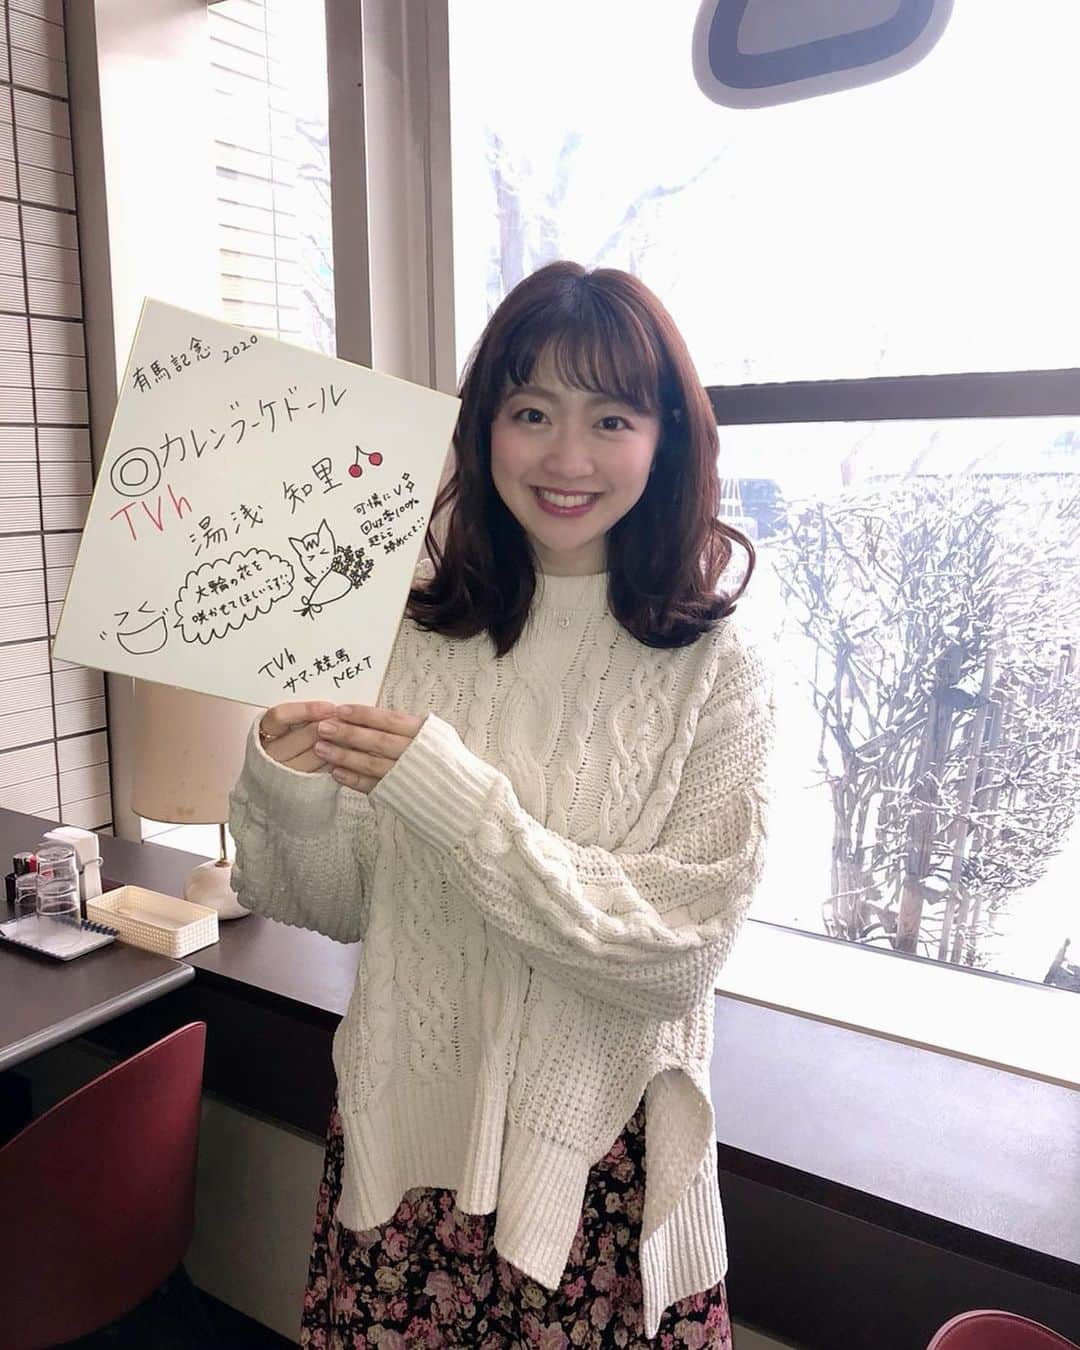 有馬記念 2020
◎カレンブーケドール
TVh
湯浅 知里
可憐にV
回収率100%
超えで
締めくくる!!
大輪の花を
咲かせてほしいっす!!
TVh
サマー競馬
NEXT